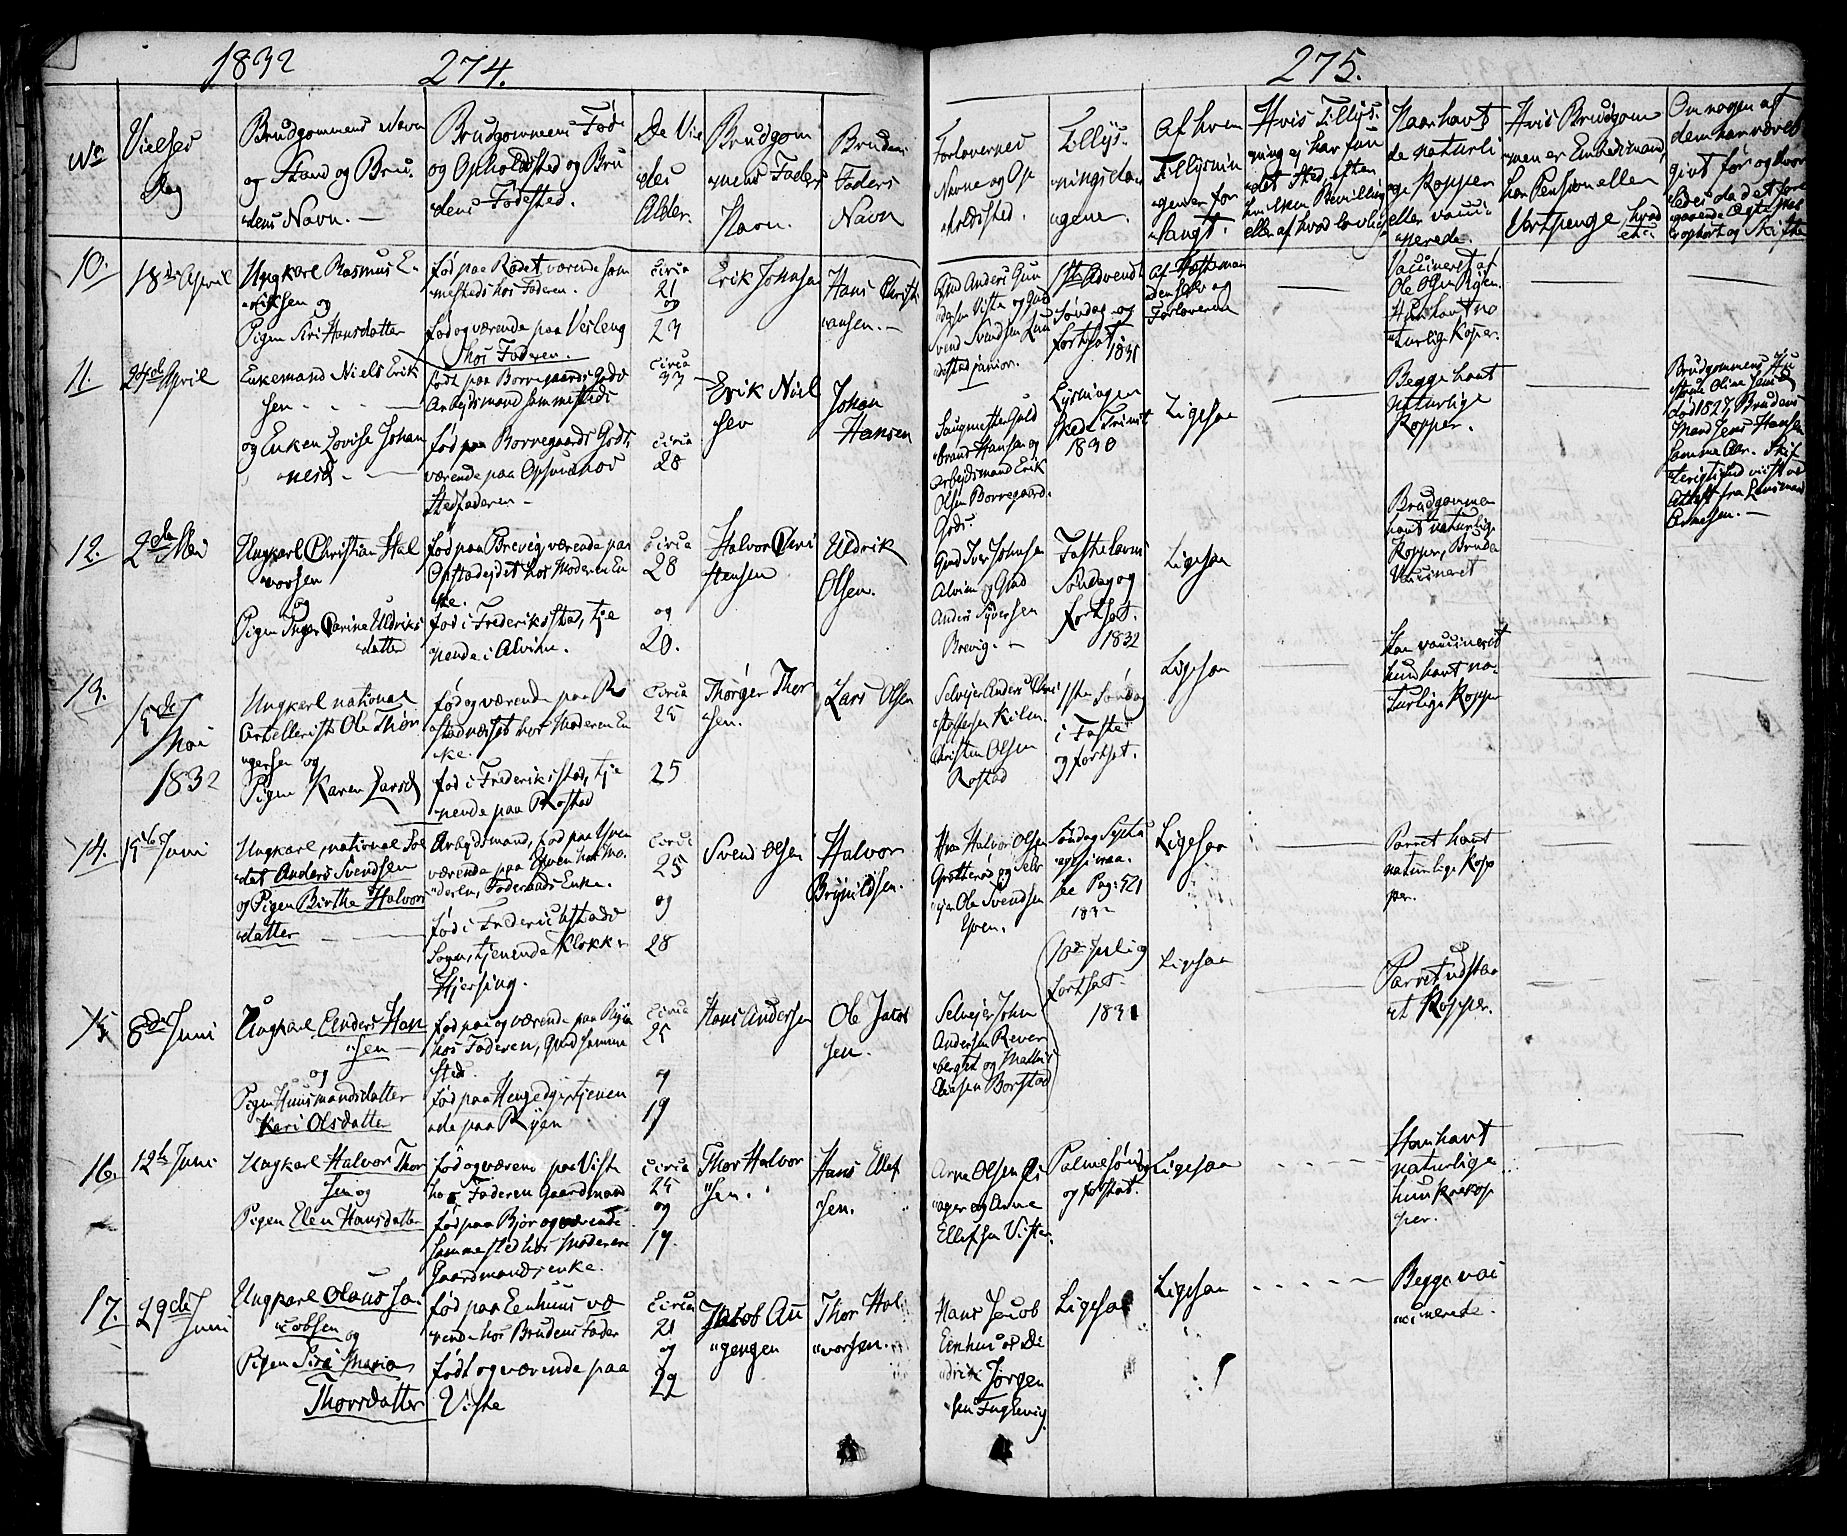 1832
274.
275.
No
Vielses
Dag
Brudgommens Navn
og Stand og Bru
dens Navn.
Brudgommens Fød
og Opholdsted og Bru
dens Fødested.
De Vie
des
Alder.
Brudgom
mens Faders
Navn.
Brudens
Faders
Navn
Forlovernes
Navne og Op
holdsted.
Tillys
ningsda
gene.
Af hvem
Tillysnin
gen er for
langt.
Hvis Tillys
ning ej har fun
det Sted, efter
hvilken Bevilling
eller af hvad lovlig
Naar havt
de naturli
ge Kopper
eller vacci
nerede.
Hvis Brudgom
men er Embedsmand,
har Pension eller
Vartpenge, hvad
etc:
Om nogen af
dem har været
givt før og hvor
ledes da det fore
gaaende Ægteskab
er ophørt og Skifte
10.
18de April
Ungkarl Rasmus E
riksen og
Pigen Siri Hansdatter
fød paa Rødet, værende sam
mesteds hos Faderen.
fød og værende paa Vesleng
hos Faderen.
circa
21
og
23
Erik Johnsen
Hans Christi
ansen.
Gmd Anders Gun
dersen Viste og Gmd
Svend Svendsen Lun
destad junior.
1ste Advent
Søndag og
fortsat
1831
Af
og
Forloverne
Vaccineret af
Ole Olsen Rigen.
Hun havt na
turlige Koper.
11.
24de April
Enkemand Niels Erik
sen
og Enken Lovise Johan
nesd
født paa Borregaards Gods
Arbejdsmand sammesteds
fød paa Borregaards Gods,
værende paa Opsund hos
Stedfaderen
circa
33
circa
28
Erik Niel
sen
Johan
Hansen
Saugmester Guld
brand Hansen og
Arbejdsmand Erik
Olsen Borregaard
Gods
Lysningen
skede Trinit
1830
Ligesaa
Begge havt
naturlige
Kopper.
Brudgommens Hu
stroe Oline Jensd
død 1827, Brudens
Mand Jens Hansen
samme Aar. Skif
terigtighed viist ved
Attest fra Lensmand
Arnesen.
12.
2den Mai
Ungkarl Christian Hal
vorsen
og
Pigen Inger Carine Uldriks
datter
fød paa Brevig, værende paa
Opstadejdet hos Moderen En
ke.
fød i Frederiksstad, tje
nende i Alvim.
circa
28
og
20.
Halvor Chri
stensen
Uldrik
Olsen.
Gmd Iver Johnsen
Alvim og Gmd
Anders Syversen
Brevig.
Fastelavns
Søndag og
fortsat.
1832
Ligesaa
Brudgommen
havt naturlige
Kopper, Bruden
Vaccineret
13.
15de
Mai
1832
Ungkarl national
Artellerist Ole Thør
gersen og
Pigen Karen Larsd
fød og værende paa Ro
stadnæset hos Moderen En
ke.
fød i Frederiksstad, tje
nende paa Rostad
circa
25
25
Thørger Thor
sen.
Lars Olsen
Selvejer Anders Chri
stophersen Kilen
Christen Olsen
Rostad
1ste Søndag
i Faste
og fortset.
Ligesaa
Han vaccineret
hun havt na
turlige Kopper
14.
15de Juni
Ungkarl national Sol
dat Anders Svendsen
og Pigen Birthe Halvors
datter
Arbejdsmand, fød paa Yven
værende paa Yven hos Mo
deren, Faderens Enke.
fød i Fredericsstads
Sogn, tjenende Klokker
Hjersing.
circa
25
og
28
Svend Olsen
Halvor
Brynildsen.
Hr Halvor Olsen
Grotterød og Selv
ejer Ole Svendsen
Yven.
Søndag Septu
agesima.
See Pag: 521
1832
Ligesaa
Parret havt
naturlige Kop
per.
15
8de Juni
Ungkarl Anders Han
sen
og
Pigen Huusmandsdatter
Kari Olsdatter
fød paa og værende paa Ryen
hos Faderen, Gmd samme
sted.
fød paa Hengedejer, tjenen
de paa Ryen
circa
25
og
19
Hans Andersen
Ole Jacob
sen.
Selvejer John
Andersen Rever
berget og Mathis
Eliasen Borstad
10de Juli og
fortsat.
1831
Ligesaa
Parret udstaa
et Kopper.
16.
12te Juni
Ungkarl Halvor Thor
sen og
Pigen Elen Hansdatter
fød og værend paa Viste
hos Faderen Gaardmand
fød paa Bjør og værende
sammested hos Moderen
Gaardmands enke.
circa
25
og
19.
Thor Halvor
sen.
Hans Ellef
sen.
Arne Olsen Ei
ager og Arne
Ellefsen Viste.
Palmesøndag
og fortsat.
Ligesaa
Han havt
naturlige
hun kokop
per.
17.
29de
Juni
Ungkarl Olaus Ja
cobsen
og
Pigen Siri Maria
Thorsdatter
fød paa Eenhuus væ
rende hos Brudens Fader
født og værende paa
Viste
circa
21
og
22
Jacob Au
gengen
Thor Hal
vorsen.
Hans Jacob
Eenhuus og Di
drik Jørgen
sen Fuglevig
Ligesaa
Ligesaa
Begge vac
cinerede.